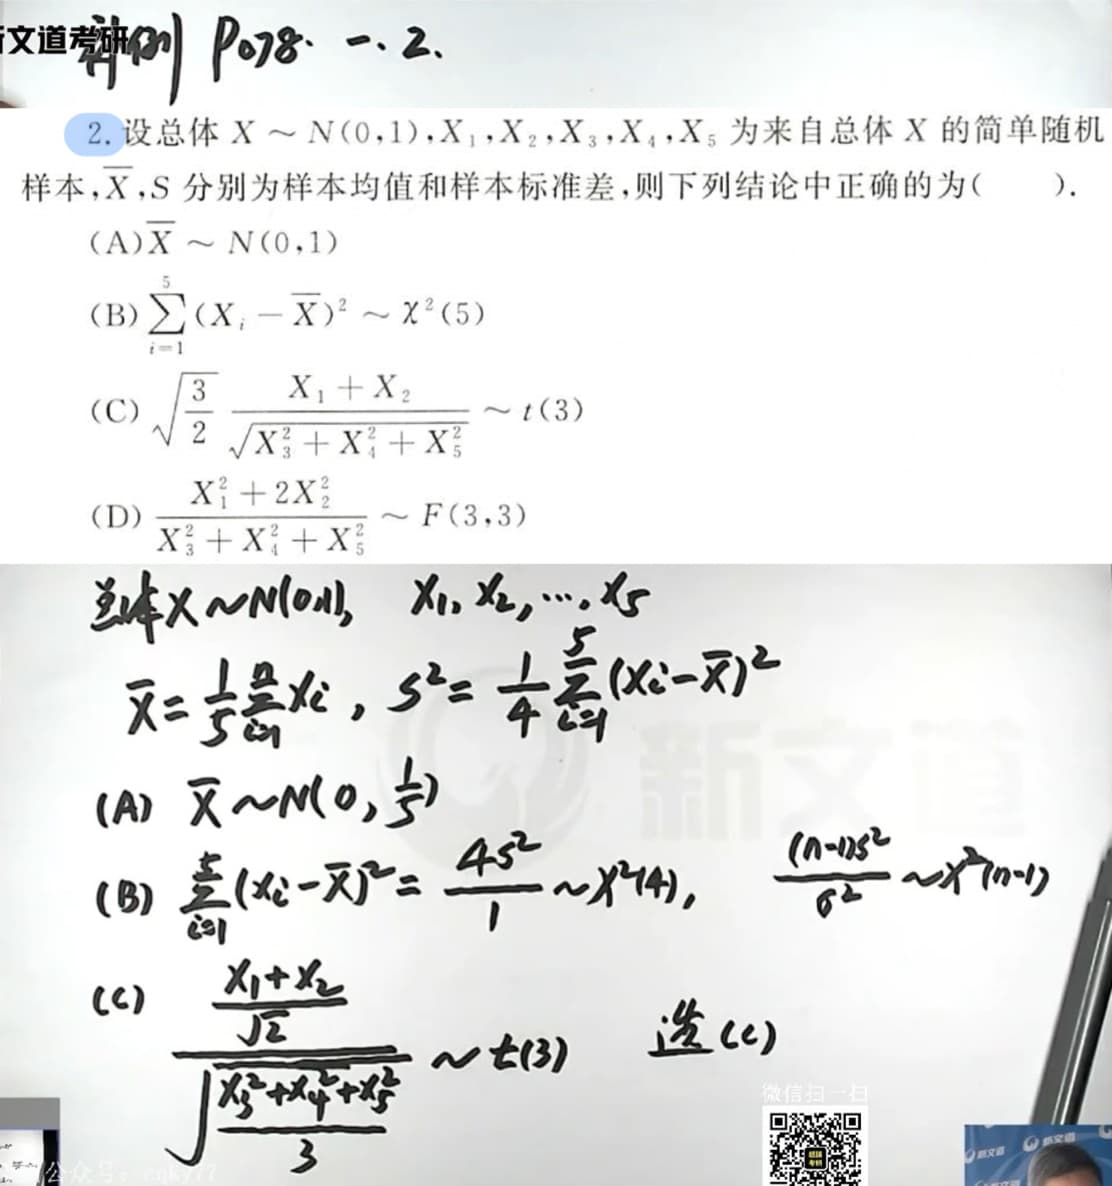 新文道考研
新例 P078. 一. 2.
2. 设总体 X ～ N(0,1),X₁,X₂,X₃,X₄,X₅ 为来自总体 X 的简单随机
样本,X̄,S 分别为样本均值和样本标准差,则下列结论中正确的为(　　).
(A)X̄ ～ N(0,1)
(B)∑_{i=1}^{5}(Xᵢ－X̄)² ～ χ²(5)
(C)√(3/2) (X₁＋X₂)/√(X₃²＋X₄²＋X₅²) ～ t(3)
(D)(X₁²＋2X₂²)/(X₃²＋X₄²＋X₅²) ～ F(3,3)
总体X~N(0,1), X₁, X₂, …, X₅
X̄=1/5 ∑_{i=1}^{n} Xᵢ , S²= 1/4 ∑_{i=1}^{5}(Xᵢ-X̄)²
(A) X̄~N(0, 1/5)
(B) ∑_{i=1}^{5}(Xᵢ-X̄)²= 4S²/1 ~χ²(4), (n-1)S²/σ² ~χ²(n-1)
(C) ((X₁+X₂)/√2)/√((X₃²+X₄²+X₅²)/3) ~t(3) 选(C)
新文道
微信扫一扫
新文道
新文道